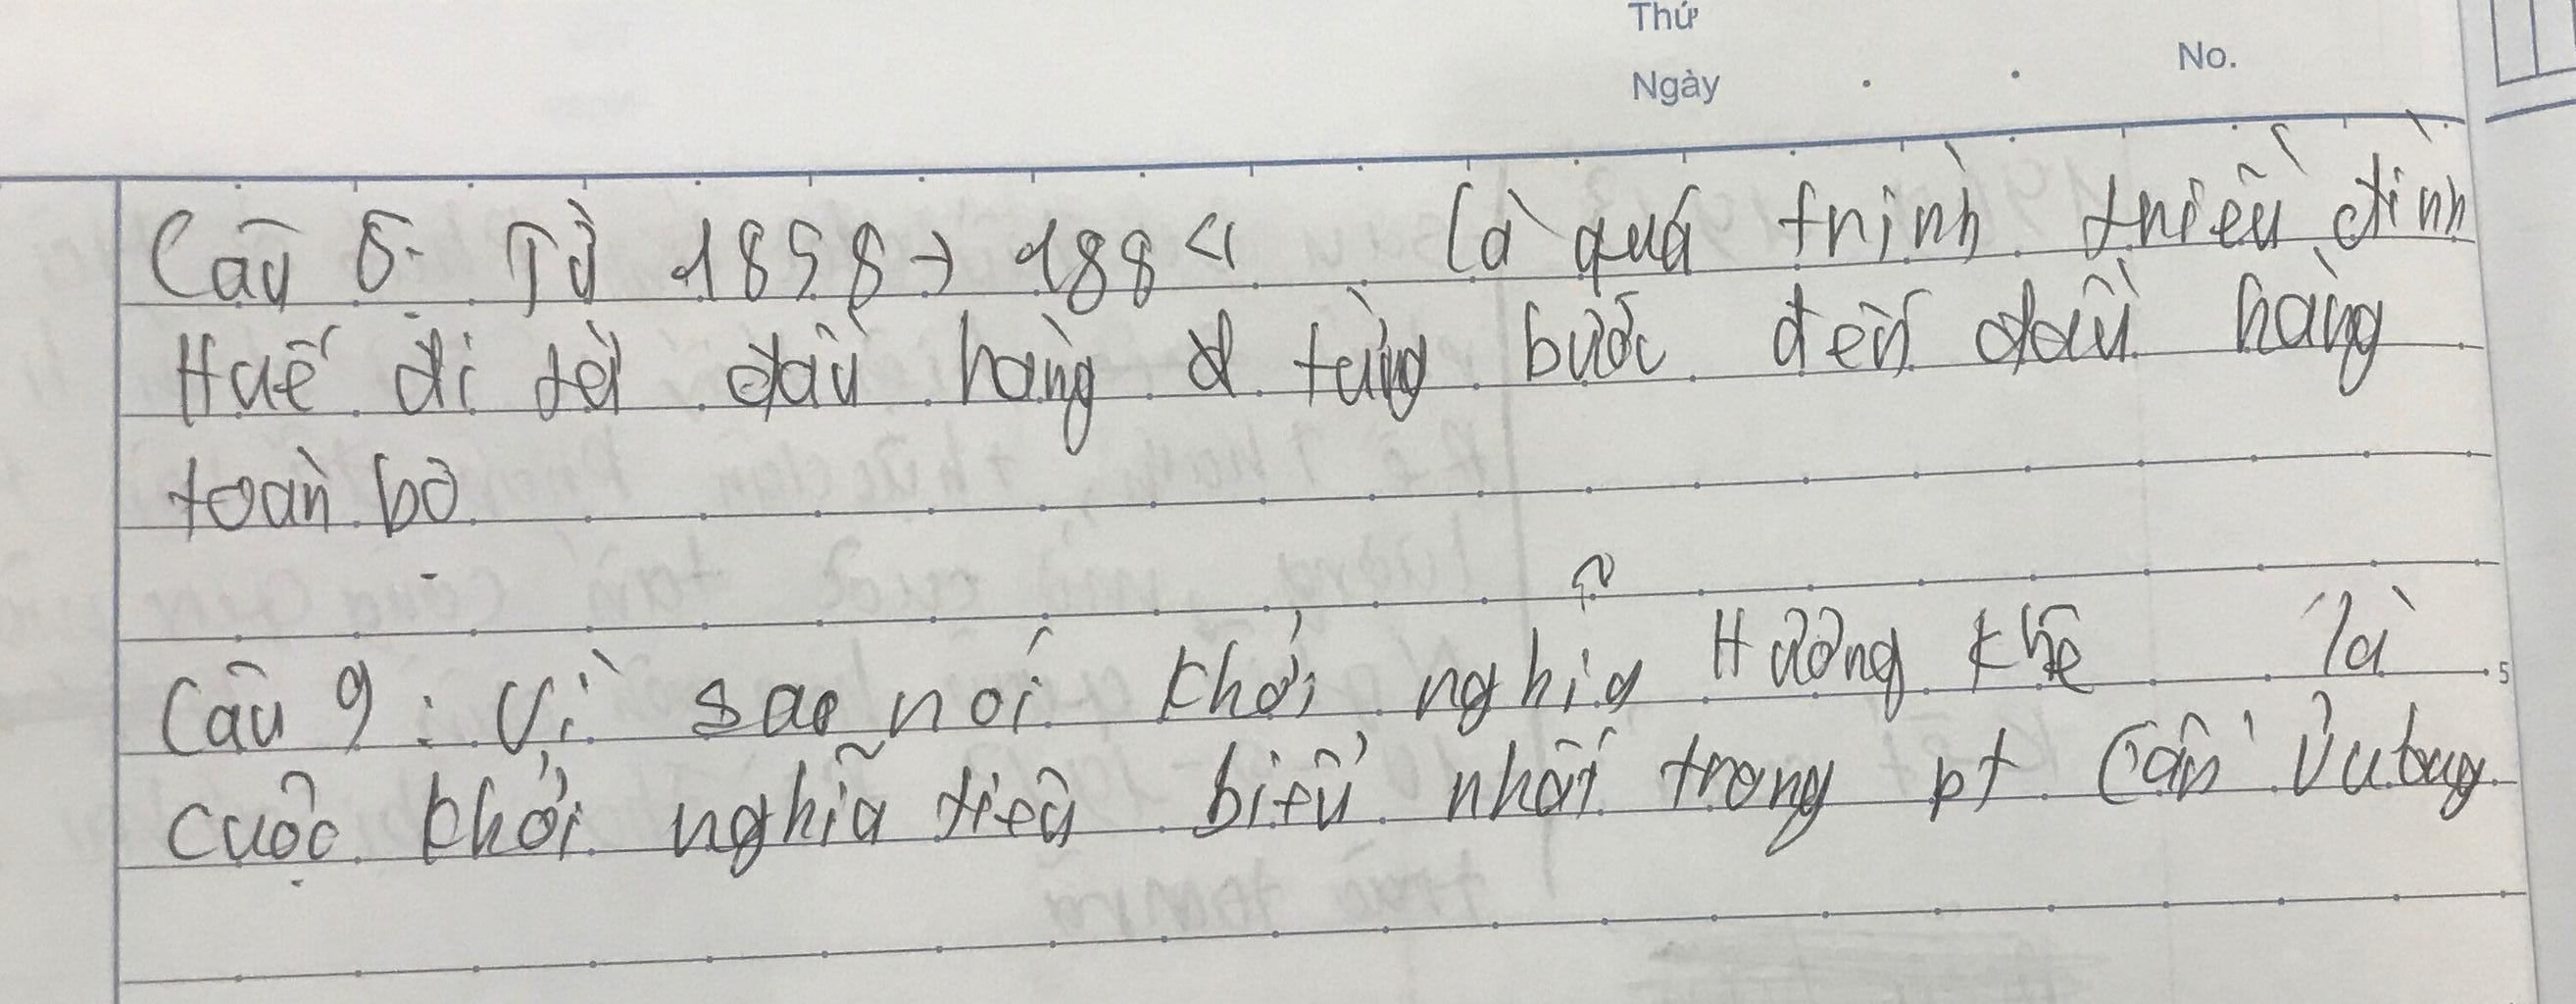 Thứ
Ngày
No.
Câu 8: Từ 1858 → 1884 là quá trình triều đình
Huế đi từ đầu hàng từng bước đến đầu hàng
toàn bộ
Câu 9: Vì sao nói khởi nghĩa Hương Khê là
5
cuộc khởi nghĩa tiêu biểu nhất trong pt Cần Vương